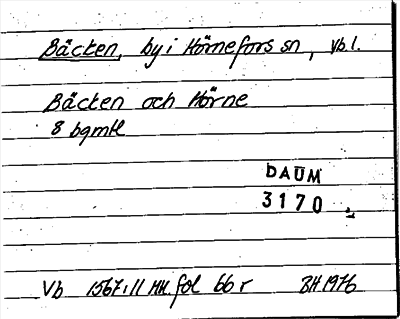 Bäcken, by i Hörnefors sn, Vb l.
Bäcken och Hörne
8 bgmtl
DAUM
3170
Vb 1567:11 MH. fol 66 r BH 1976